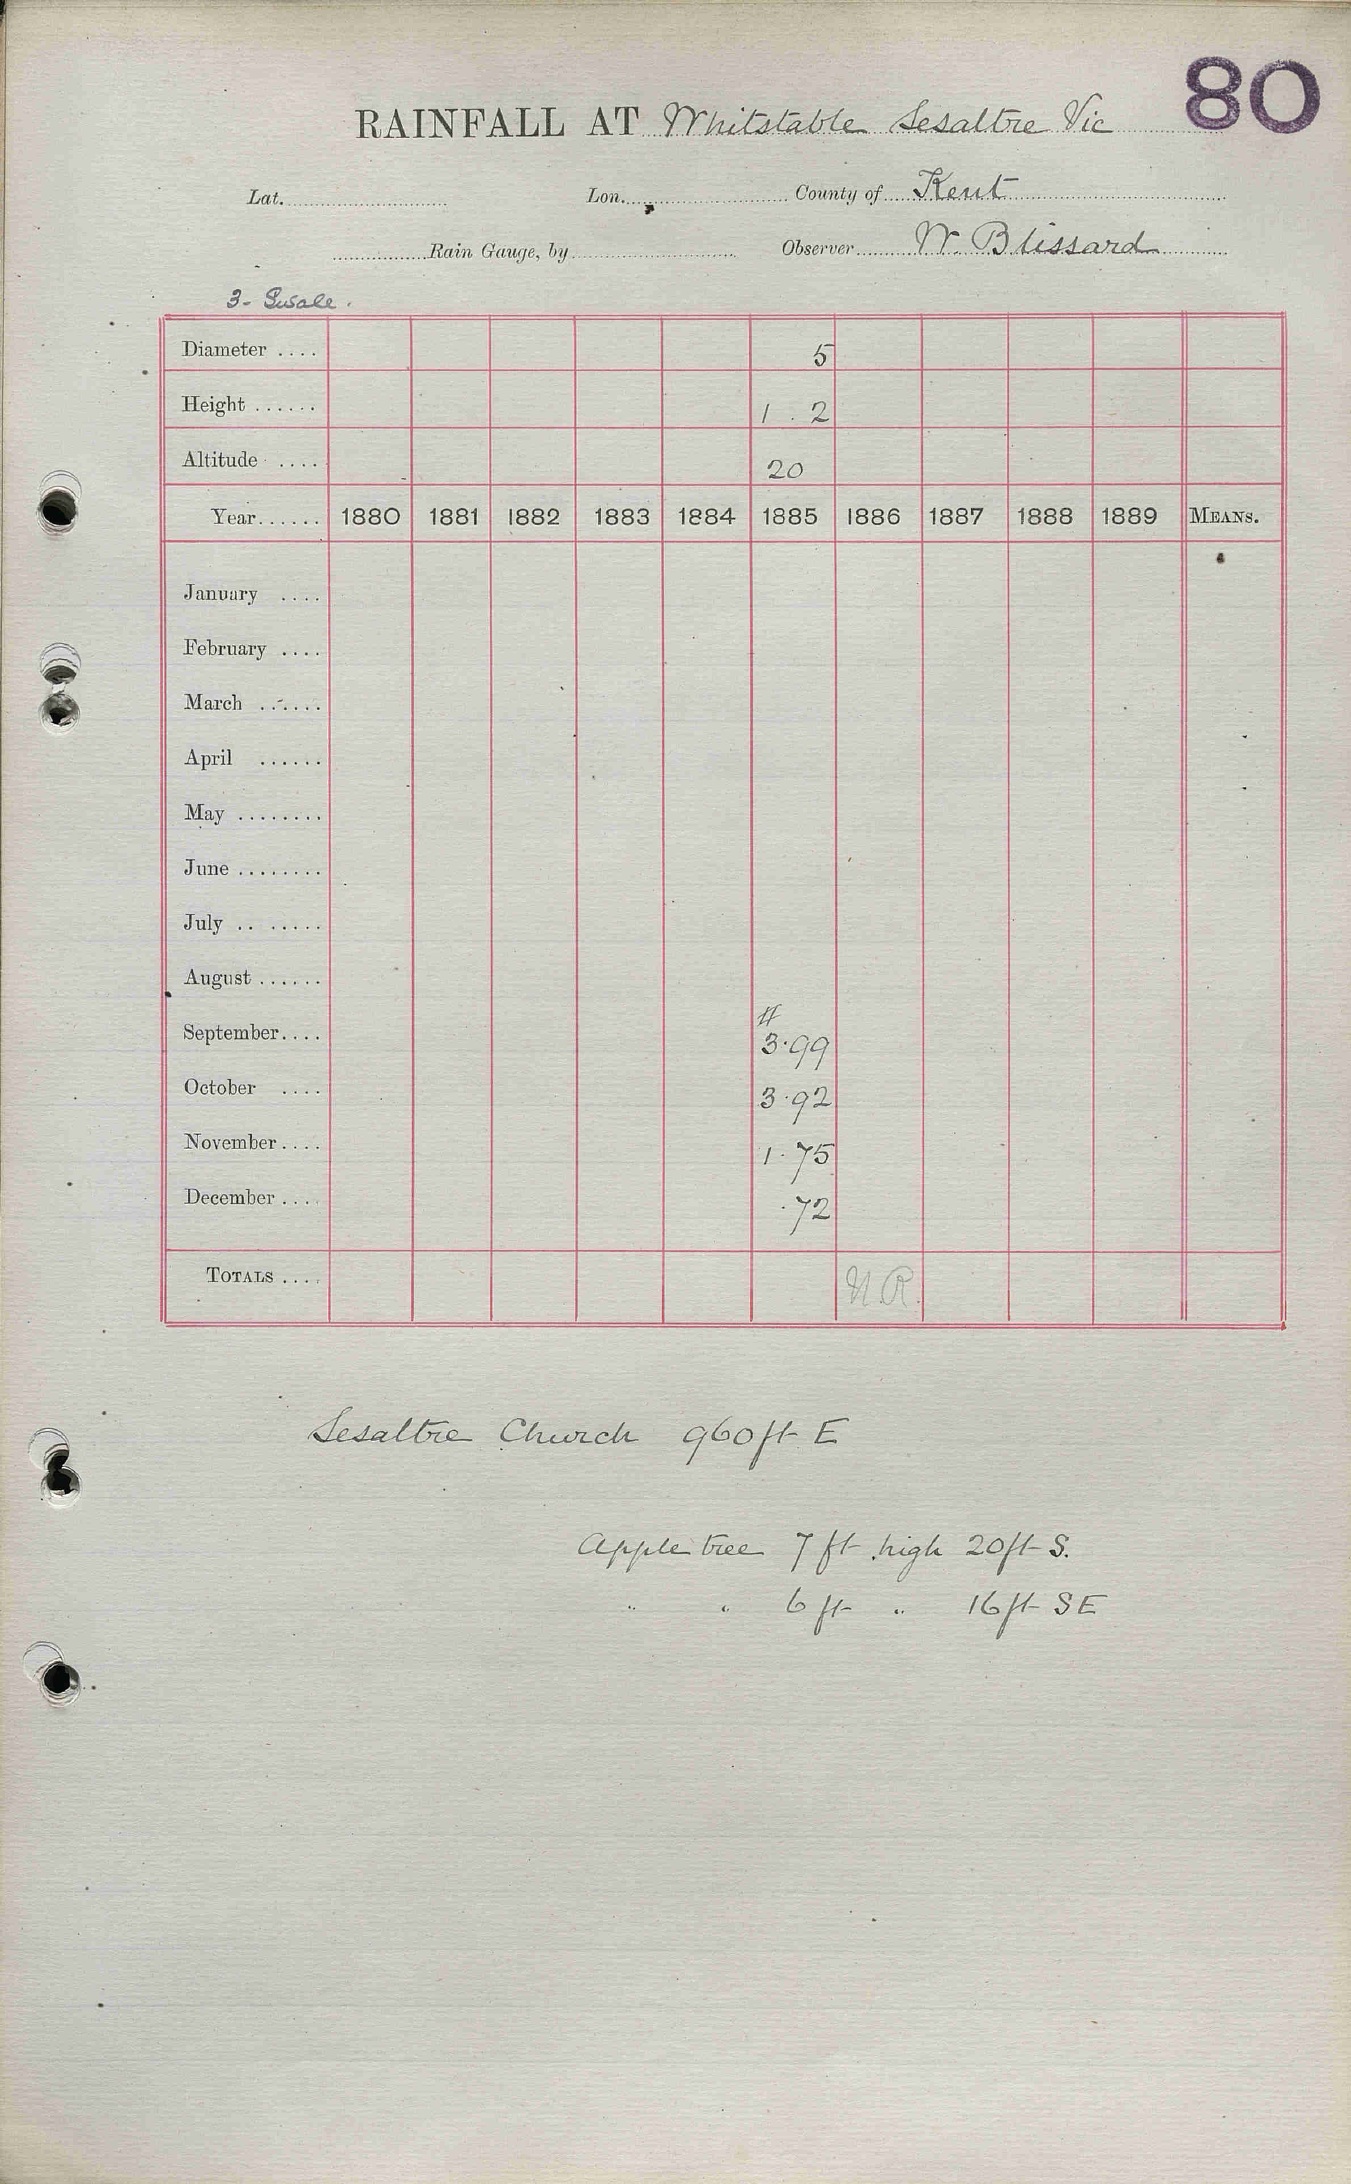 80
RAINFALL AT Whitstable Sesaltre Vic
Lat. Lon. County of Kent
Rain Gauge, by Observer W. Blissard
3 - Swale.
Diameter .... 5
Height ...... 1 . 2
Altitude .... 20
Year...... 1880 1881 1882 1883 1884 1885 1886 1887 1888 1889 MEANS.
January ....
February ....
March ......
April ......
May ........
June ........
July .. .....
August ......
#
September.... 3.99
October .... 3.92
November.... 1.75
December.... .72
TOTALS .... N.R.
Sesaltre Church 960ft E
Apple tree 7 ft high 20ft S.
" " 6 ft " 16ft SE